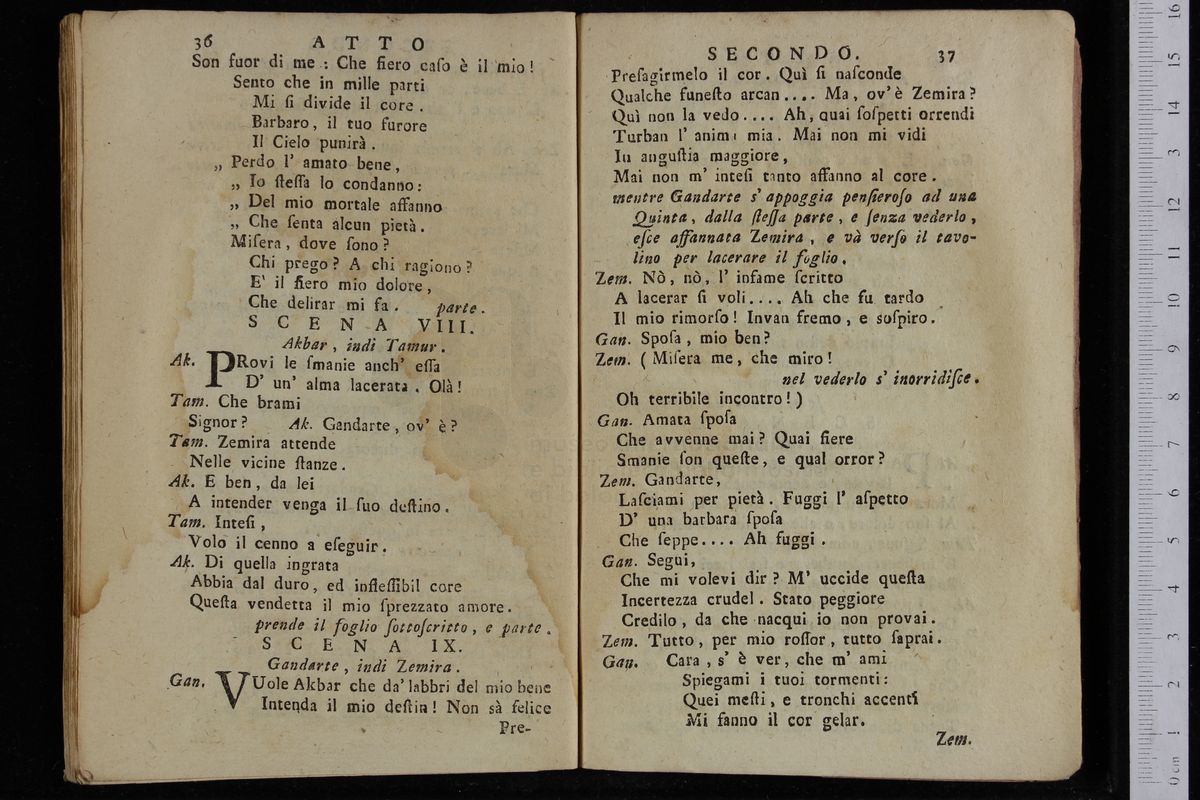 36 ATTO
Son fuor di me : Che fiero caſo è il mio !
Sento che in mille parti
Mi ſi divide il core .
Barbaro , il tuo furore
Il Cielo punirà .
„ Perdo l' amato bene ,
„ Io ſteſſa lo condanno :
„ Del mio mortale affanno
„ Che ſenta alcun pietà .
Miſera , dove ſono ?
Chi prego ? A chi ragiono ?
E' il fiero mio dolore ,
Che delirar mi fa . parte .
SCENA VIII.
Akbar , indi Tamur .
Ak. PRovi le ſmanie anch' eſſa
D' un' alma lacerata . Olà !
Tam. Che brami
Signor ? Ak. Gandarte , ov' è ?
Tam. Zemira attende
Nelle vicine ſtanze .
Ak. E ben , da lei
A intender venga il ſuo deſtino .
Tam. Inteſi ,
Volo il cenno a eſeguir .
Ak. Di quella ingrata
Abbia dal duro , ed infleſſibil core
Queſta vendetta il mio ſprezzato amore .
prende il foglio ſottoſcritto , e parte .
SCENA IX.
Gandarte , indi Zemira .
Gan. VUole Akbar che da' labbri del mio bene
Intenda il mio deſtin ! Non sà felice
Pre-
SECONDO. 37
Preſagirmelo il cor . Quì ſi naſconde
Qualche funeſto arcan .... Ma , ov' è Zemira ?
Quì non la vedo .... Ah , quai ſoſpetti orrendi
Turban l' anima mia . Mai non mi vidi
In anguſtia maggiore ,
Mai non m' inteſi tanto affanno al core .
mentre Gandarte s' appoggia penſieroſo ad una
Quinta , dalla ſteſſa parte , e ſenza vederlo ,
eſce affannata Zemira , e và verſo il tavo-
lino per lacerare il foglio .
Zem. Nò , nò , l' infame ſcritto
A lacerar ſi voli .... Ah che fu tardo
Il mio rimorſo ! Invan fremo , e soſpiro .
Gan. Spoſa , mio ben ?
Zem. ( Miſera me , che miro !
nel vederlo s' inorridiſce .
Oh terribile incontro ! )
Gan. Amata ſpoſa
Che avvenne mai ? Quai fiere
Smanie ſon queſte , e qual orror ?
Zem. Gandarte ,
Laſciami per pietà . Fuggi l' aſpetto
D' una barbara ſpoſa
Che ſeppe .... Ah fuggi .
Gan. Segui ,
Che mi volevi dir ? M' uccide queſta
Incertezza crudel . Stato peggiore
Credilo , da che nacqui io non provai .
Zem. Tutto , per mio roſſor , tutto ſaprai .
Gan. Cara , s' è ver , che m' ami
Spiegami i tuoi tormenti :
Quei meſti , e tronchi accenti
Mi fanno il cor gelar .
Zem.